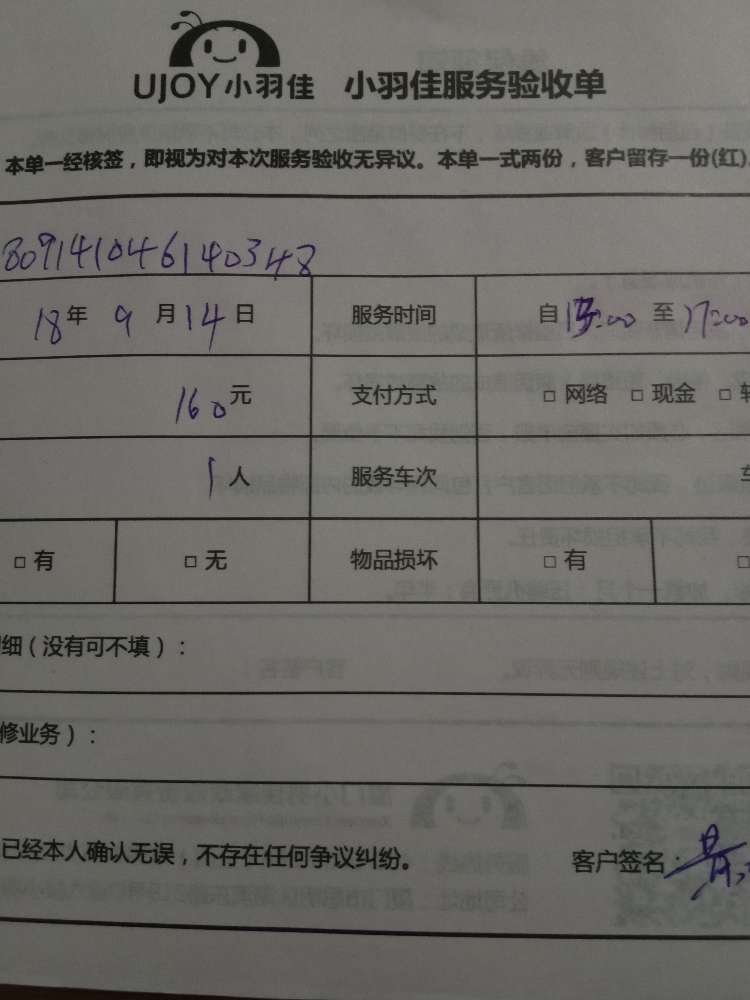 UJOY小羽佳 小羽佳服务验收单
本单一经核签，即视为对本次服务验收无异议。本单一式两份，客户留存一份(红)
809141046140348
18年 9 月 14 日 服务时间 自 :00 至 17:00
160元 支付方式 □ 网络 □ 现金 □
1人 服务车次
□ 有 □ 无 物品损坏 □ 有 □
细（没有可不填）：
修业务）：
已经本人确认无误，不存在任何争议纠纷。 客户签名：